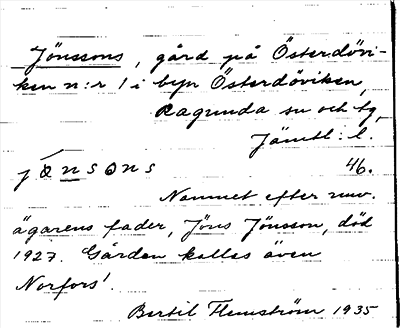 Jönssons, gård på Österdövi-
ken n:r 1 i byn Österdöviken,
Ragunda sn och tg,
Jämtl: l.
46.
Namnet efter nuv.
ägarens fader, Jöns Jönsson, död
1927. Gården kallas även
Norfors!
Bertil Flemström 1935